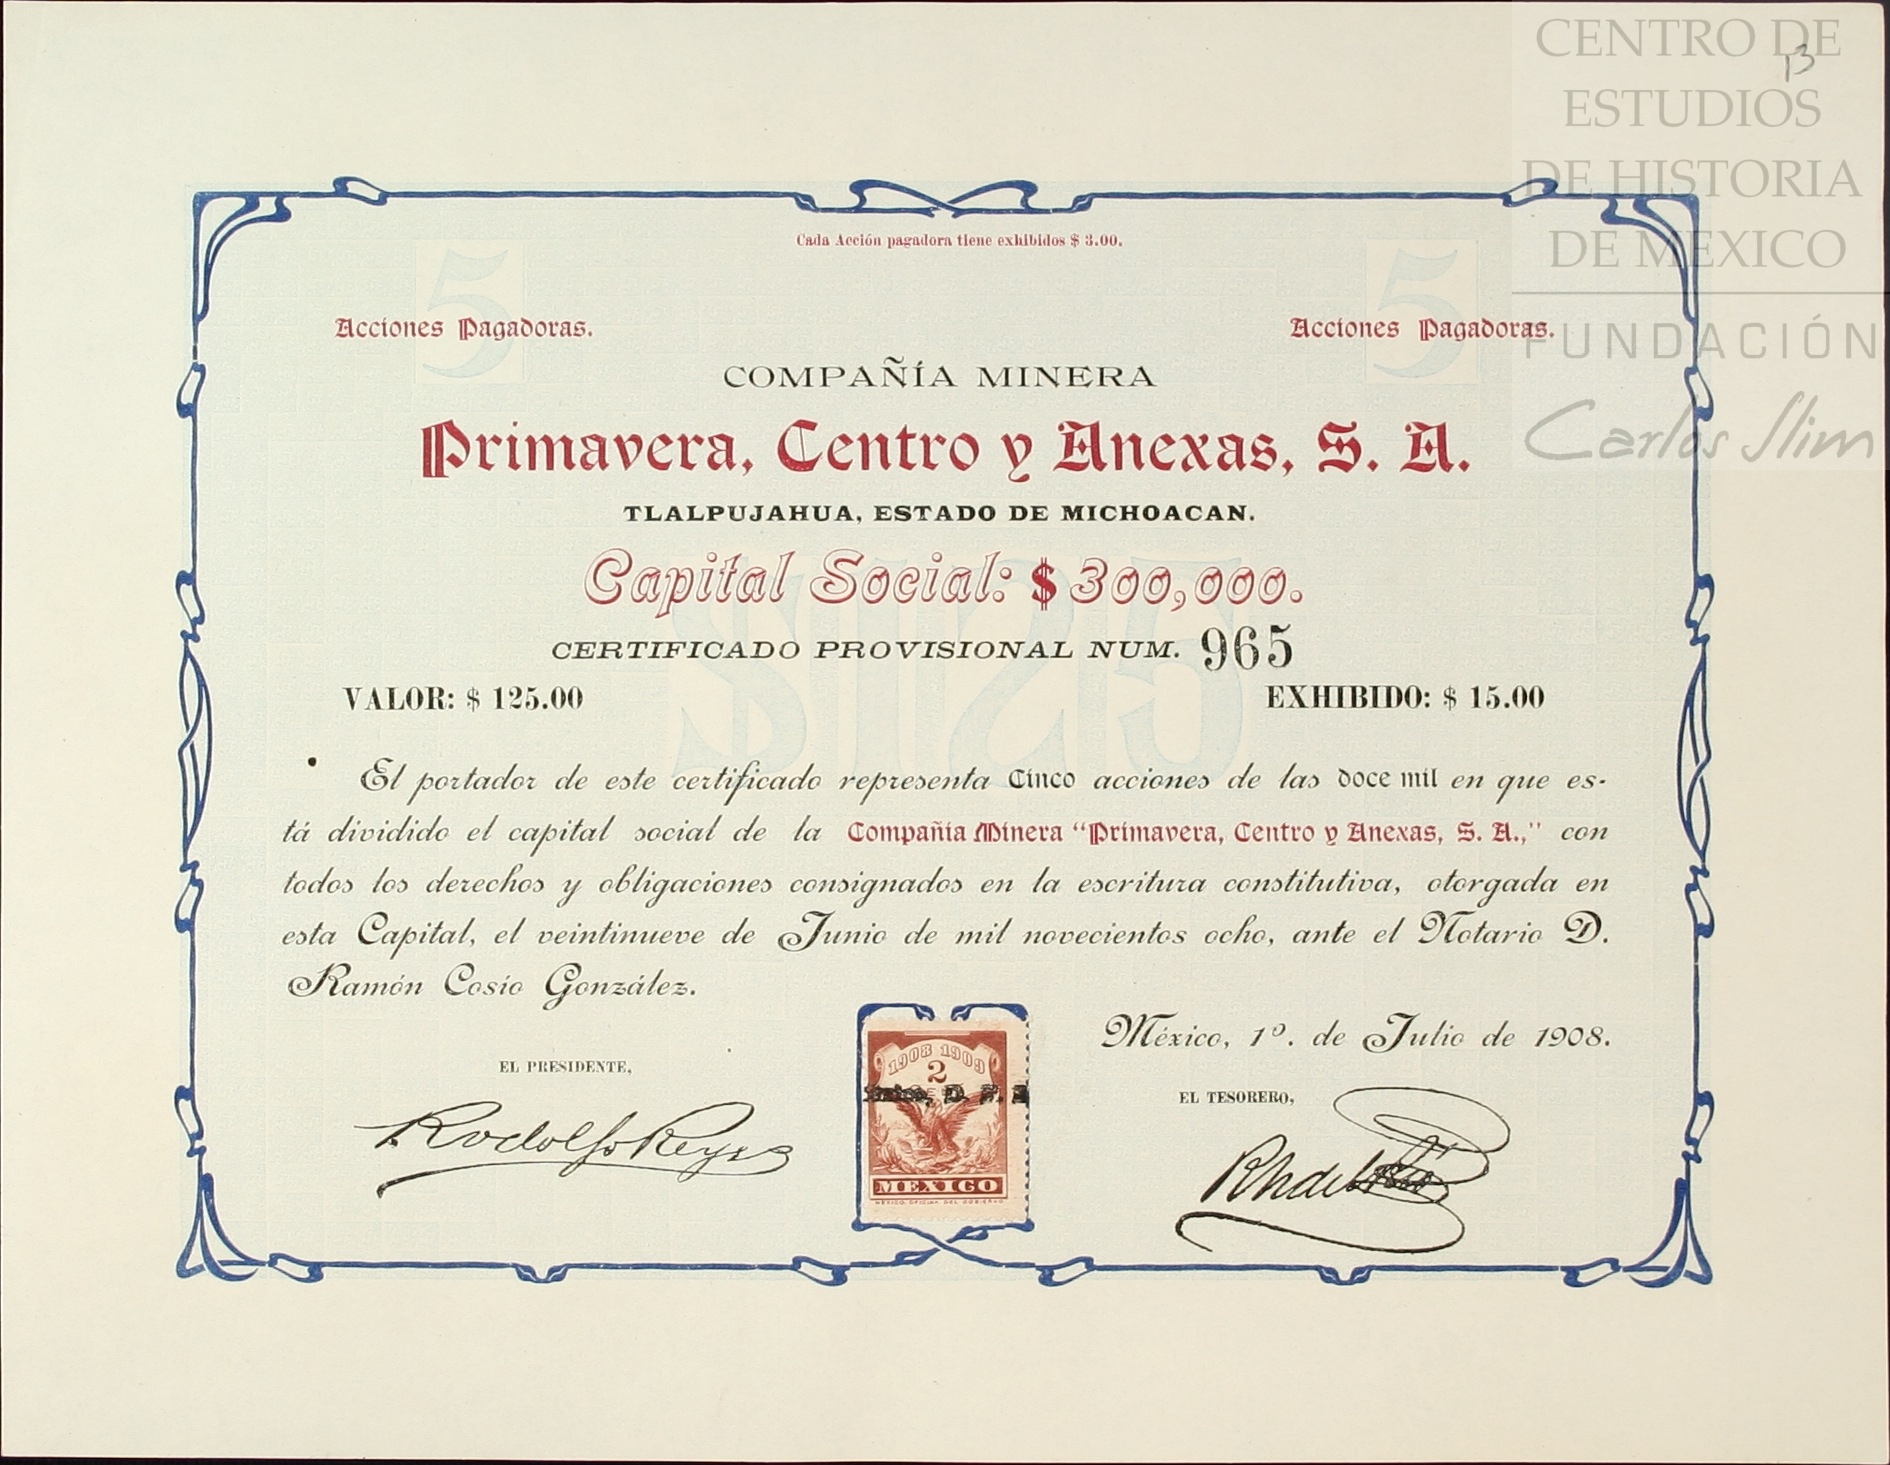 CENTRO DE
ESTUDIOS
DE HISTORIA
DE MEXICO
FUNDACIÓN
Carlos Slim
13
Cada Acción pagadora tiene exhibidos $ 3.00.
5 5
Acciones Pagadoras. Acciones Pagadoras.
COMPAÑÍA MINERA
Primavera, Centro y Anexas, S. A.
TLALPUJAHUA, ESTADO DE MICHOACAN.
Capital Social: $ 300,000.
$125
CERTIFICADO PROVISIONAL NUM. 965
VALOR: $ 125.00 EXHIBIDO: $ 15.00
El portador de este certificado representa Cinco acciones de las doce mil en que es-
tá dividido el capital social de la Compañía Minera "Primavera, Centro y Anexas, S. A.," con
todos los derechos y obligaciones consignados en la escritura constitutiva, otorgada en
esta Capital, el veintinueve de Junio de mil novecientos ocho, ante el Notario D.
Ramón Cosío González.
México, 1º. de Julio de 1908.
EL PRESIDENTE,
Rodolfo Reyes
1908 1909
2
D. F.
MEXICO
MEXICO. OFICINA DEL GOBIERNO
EL TESORERO,